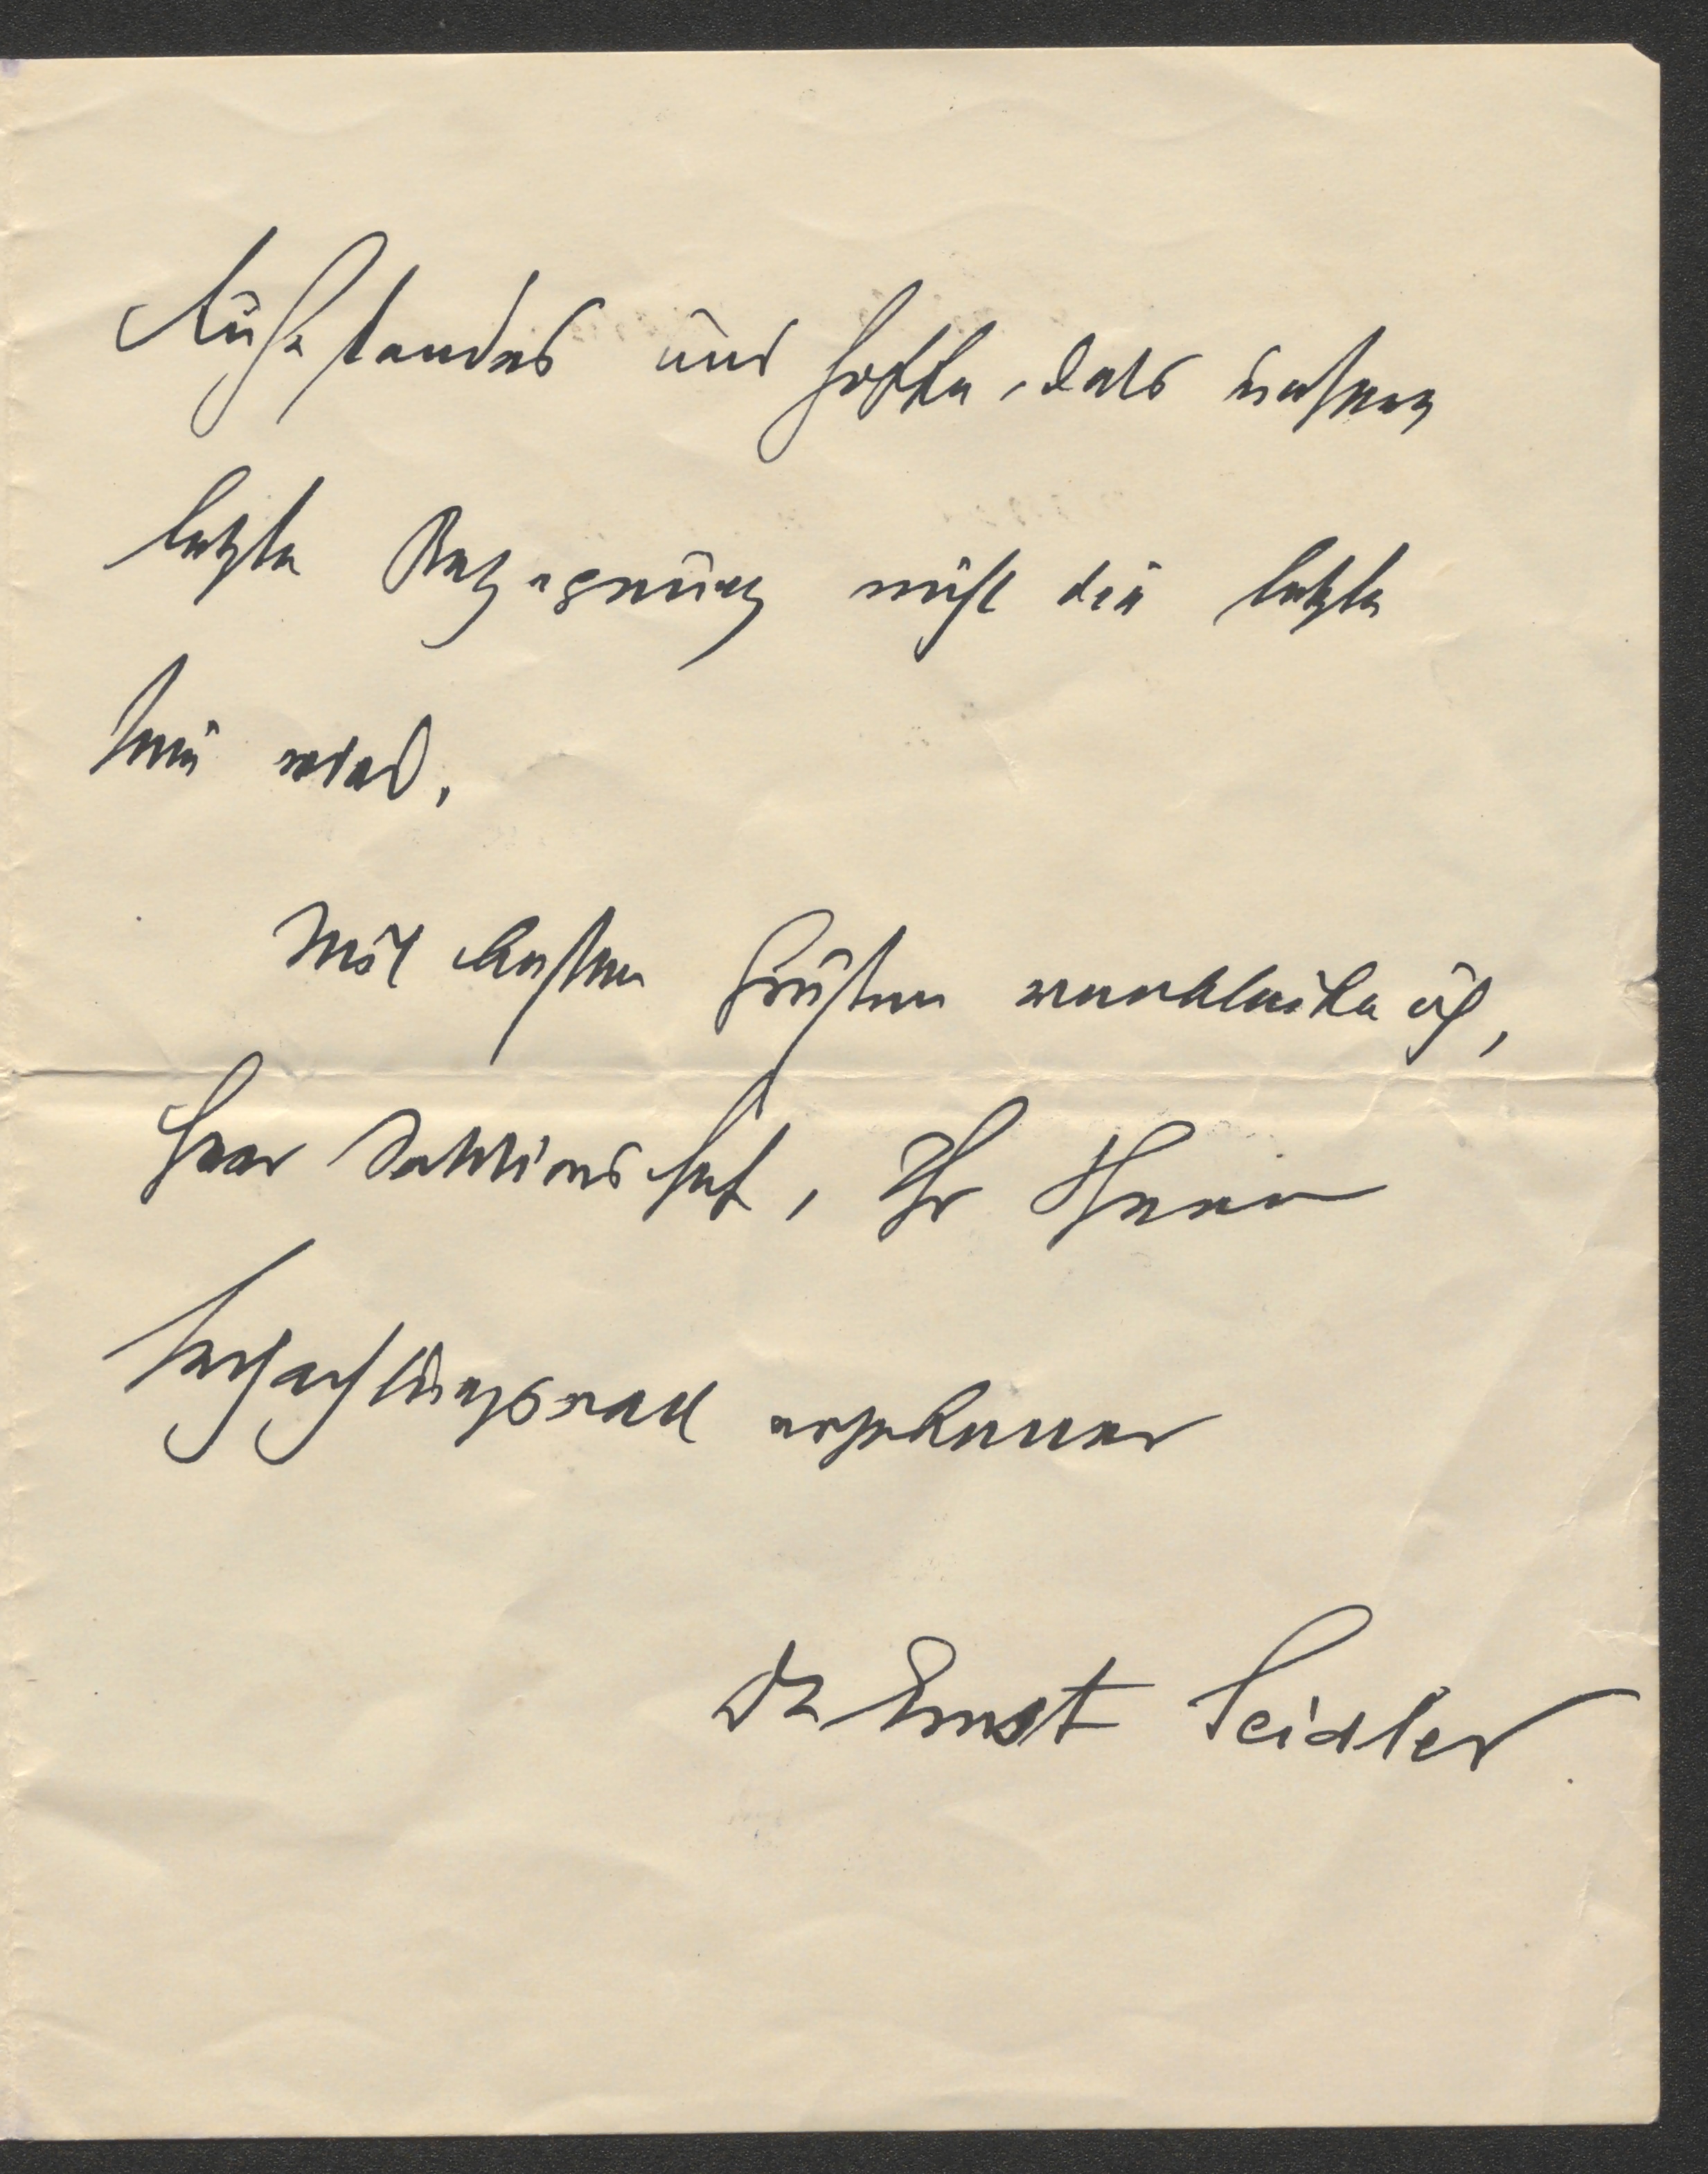 Ruhestandes und hoffe, dass unsere
letzte Begegnung nicht die letzte
sein wird.
Mit besten Grüßen verbleibe ich,
Herr Sektionschef, Ihr Ihnen
hochachtungsvoll ergebener
Dr Ernst Seidler